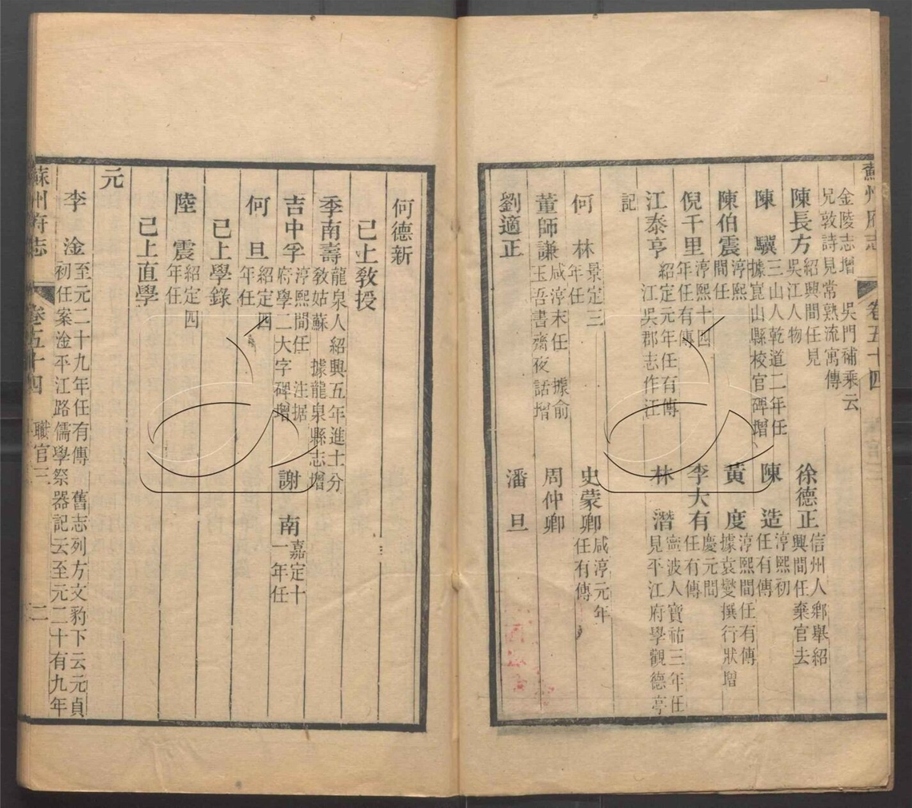 蘇州府志 卷五十四
金陵志增 吳門補乘云
兄敦詩見常熟流寓傳
陳長方 紹興間任見吳江人物 徐德正 信州人鄉舉紹興間任棄官去
陳 騤 三山人乾道二年任據崑山縣校官碑增 陳 造 淳熙初任有傳
陳伯震 淳熙間任 黃 度 淳熙間任有傳據袁燮撰行狀增
倪千里 淳熙十四年任有傳 李大有 慶元間任有傳
江泰亨 紹定元年任有傳吳郡志作汪 林 潛 寧波人寶祐三年任見平江府學觀德亭
記
何 林 景定三年任 史蒙卿 咸淳元年任有傳
董師謙 咸淳末任 據俞玉吾書齋夜話增 周仲卿
劉適正 潘 旦
何德新
已上教授
季南壽 龍泉人紹興五年進士分教姑蘇 據龍泉縣志增
吉中孚 淳熙間任 注据府學二大字碑增 謝 南 嘉定十一年任
何 旦 紹定四年任
已上學錄
陸 震 紹定四年任
已上直學
元
李 淦 至元二十九年任有傳 舊志列方文豹下云元貞初任案淦平江路儒學祭器記云至元二十有九年
蘇州府志 卷五十四 職官三 二